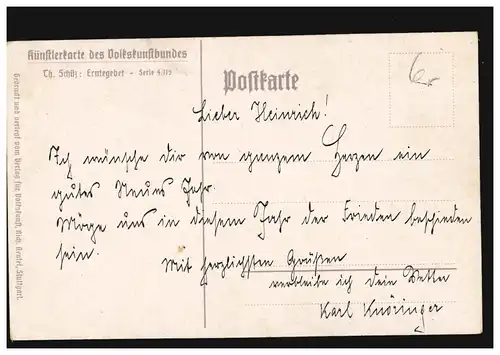 Künstlerkarte des Volkskunstbundes
Th. Schüz: Erntegebet - Serie 4/115
Postkarte
6.-
Lieber Heinrich!
Ich wünsche dir von ganzem Herzen ein
gutes Neues Jahr.
Möge uns in diesem Jahr der Frieden beschieden
sein.
Mit herzlichsten Grüßen
verbleibe ich dein Vetter
Karl Knöringer
Gedruckt und verlegt vom Verlag für Volkskunst, Rich. Keutel, Stuttgart.